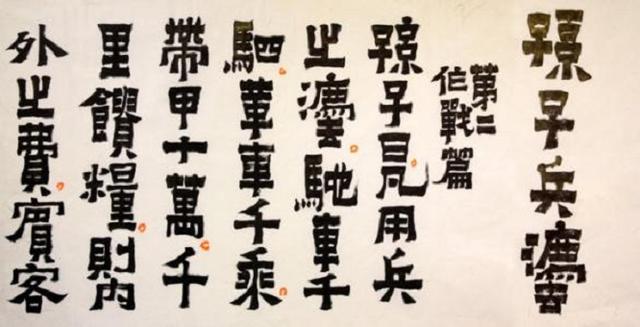 孫子兵灋
第二
作戰篇
孫子曰凡用兵
之灋馳車千
駟革車千乘
帶甲十萬千
里饋糧則內
外之費賓客